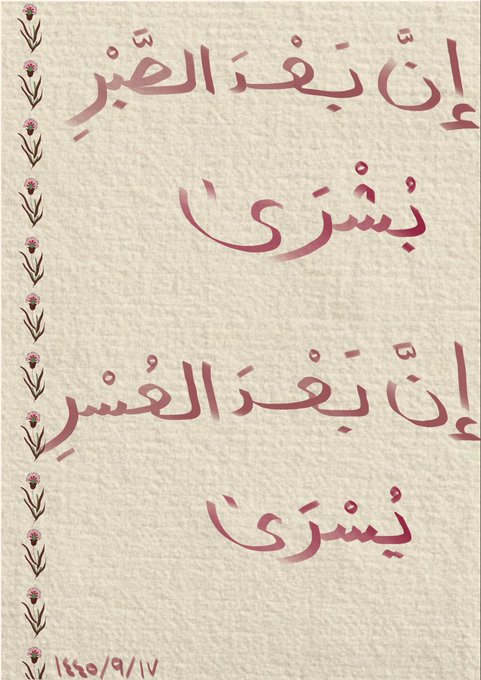 إِنَّ بَعْدَ الصَّبْرِ
بُشْرَىٰ
إِنَّ بَعْدَ الْعُسْرِ
يُسْرَىٰ
١٤٤٥/٩/١٧